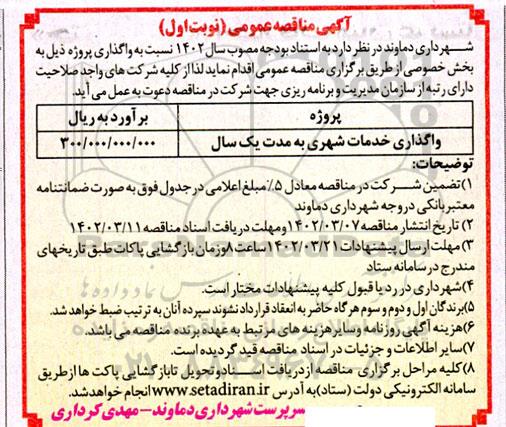 آگهی مناقصه عمومی (نوبت اول)
شهرداری دماوند در نظر دارد به استناد بودجه مصوب سال ۱۴۰۲ نسبت به واگذاری پروژه ذیل به
بخش خصوصی از طریق برگزاری مناقصه عمومی اقدام نماید لذا از کلیه شرکت های واجد صلاحیت
دارای رتبه از سازمان مدیریت و برنامه ریزی جهت شرکت در مناقصه دعوت به عمل می آید.
پروژه برآورد به ریال
واگذاری خدمات شهری به مدت یک سال ۳۰۰/۰۰۰/۰۰۰/۰۰۰
توضیحات:
۱) تضمین شرکت در مناقصه معادل ۵٪ مبلغ اعلامی در جدول فوق به صورت ضمانتنامه
معتبر بانکی در وجه شهرداری دماوند
۲) تاریخ انتشار مناقصه ۱۴۰۲/۰۳/۰۷ و مهلت دریافت اسناد مناقصه ۱۴۰۲/۰۳/۱۱
۳) مهلت ارسال پیشنهادات ۱۴۰۲/۰۳/۲۱ ساعت ۸ و زمان بازگشایی پاکات طبق تاریخهای
مندرج در سامانه ستاد
۴) شهرداری در رد یا قبول کلیه پیشنهادات مختار است.
۵) برندگان اول و دوم و سوم هر گاه حاضر به انعقاد قرارداد نشوند سپرده آنان به ترتیب ضبط خواهد شد.
۶) هزینه آگهی روزنامه و سایر هزینه های مرتبط به عهده برنده مناقصه می باشد.
۷) سایر اطلاعات و جزئیات در اسناد مناقصه قید گردیده است.
۸) کلیه مراحل برگزاری مناقصه از دریافت اسناد و تحویل تا بازگشایی پاکت ها از طریق
سامانه الکترونیکی دولت (ستاد) به آدرس www.setadiran.ir انجام خواهد شد.
سرپرست شهرداری دماوند - مهدی گرداری